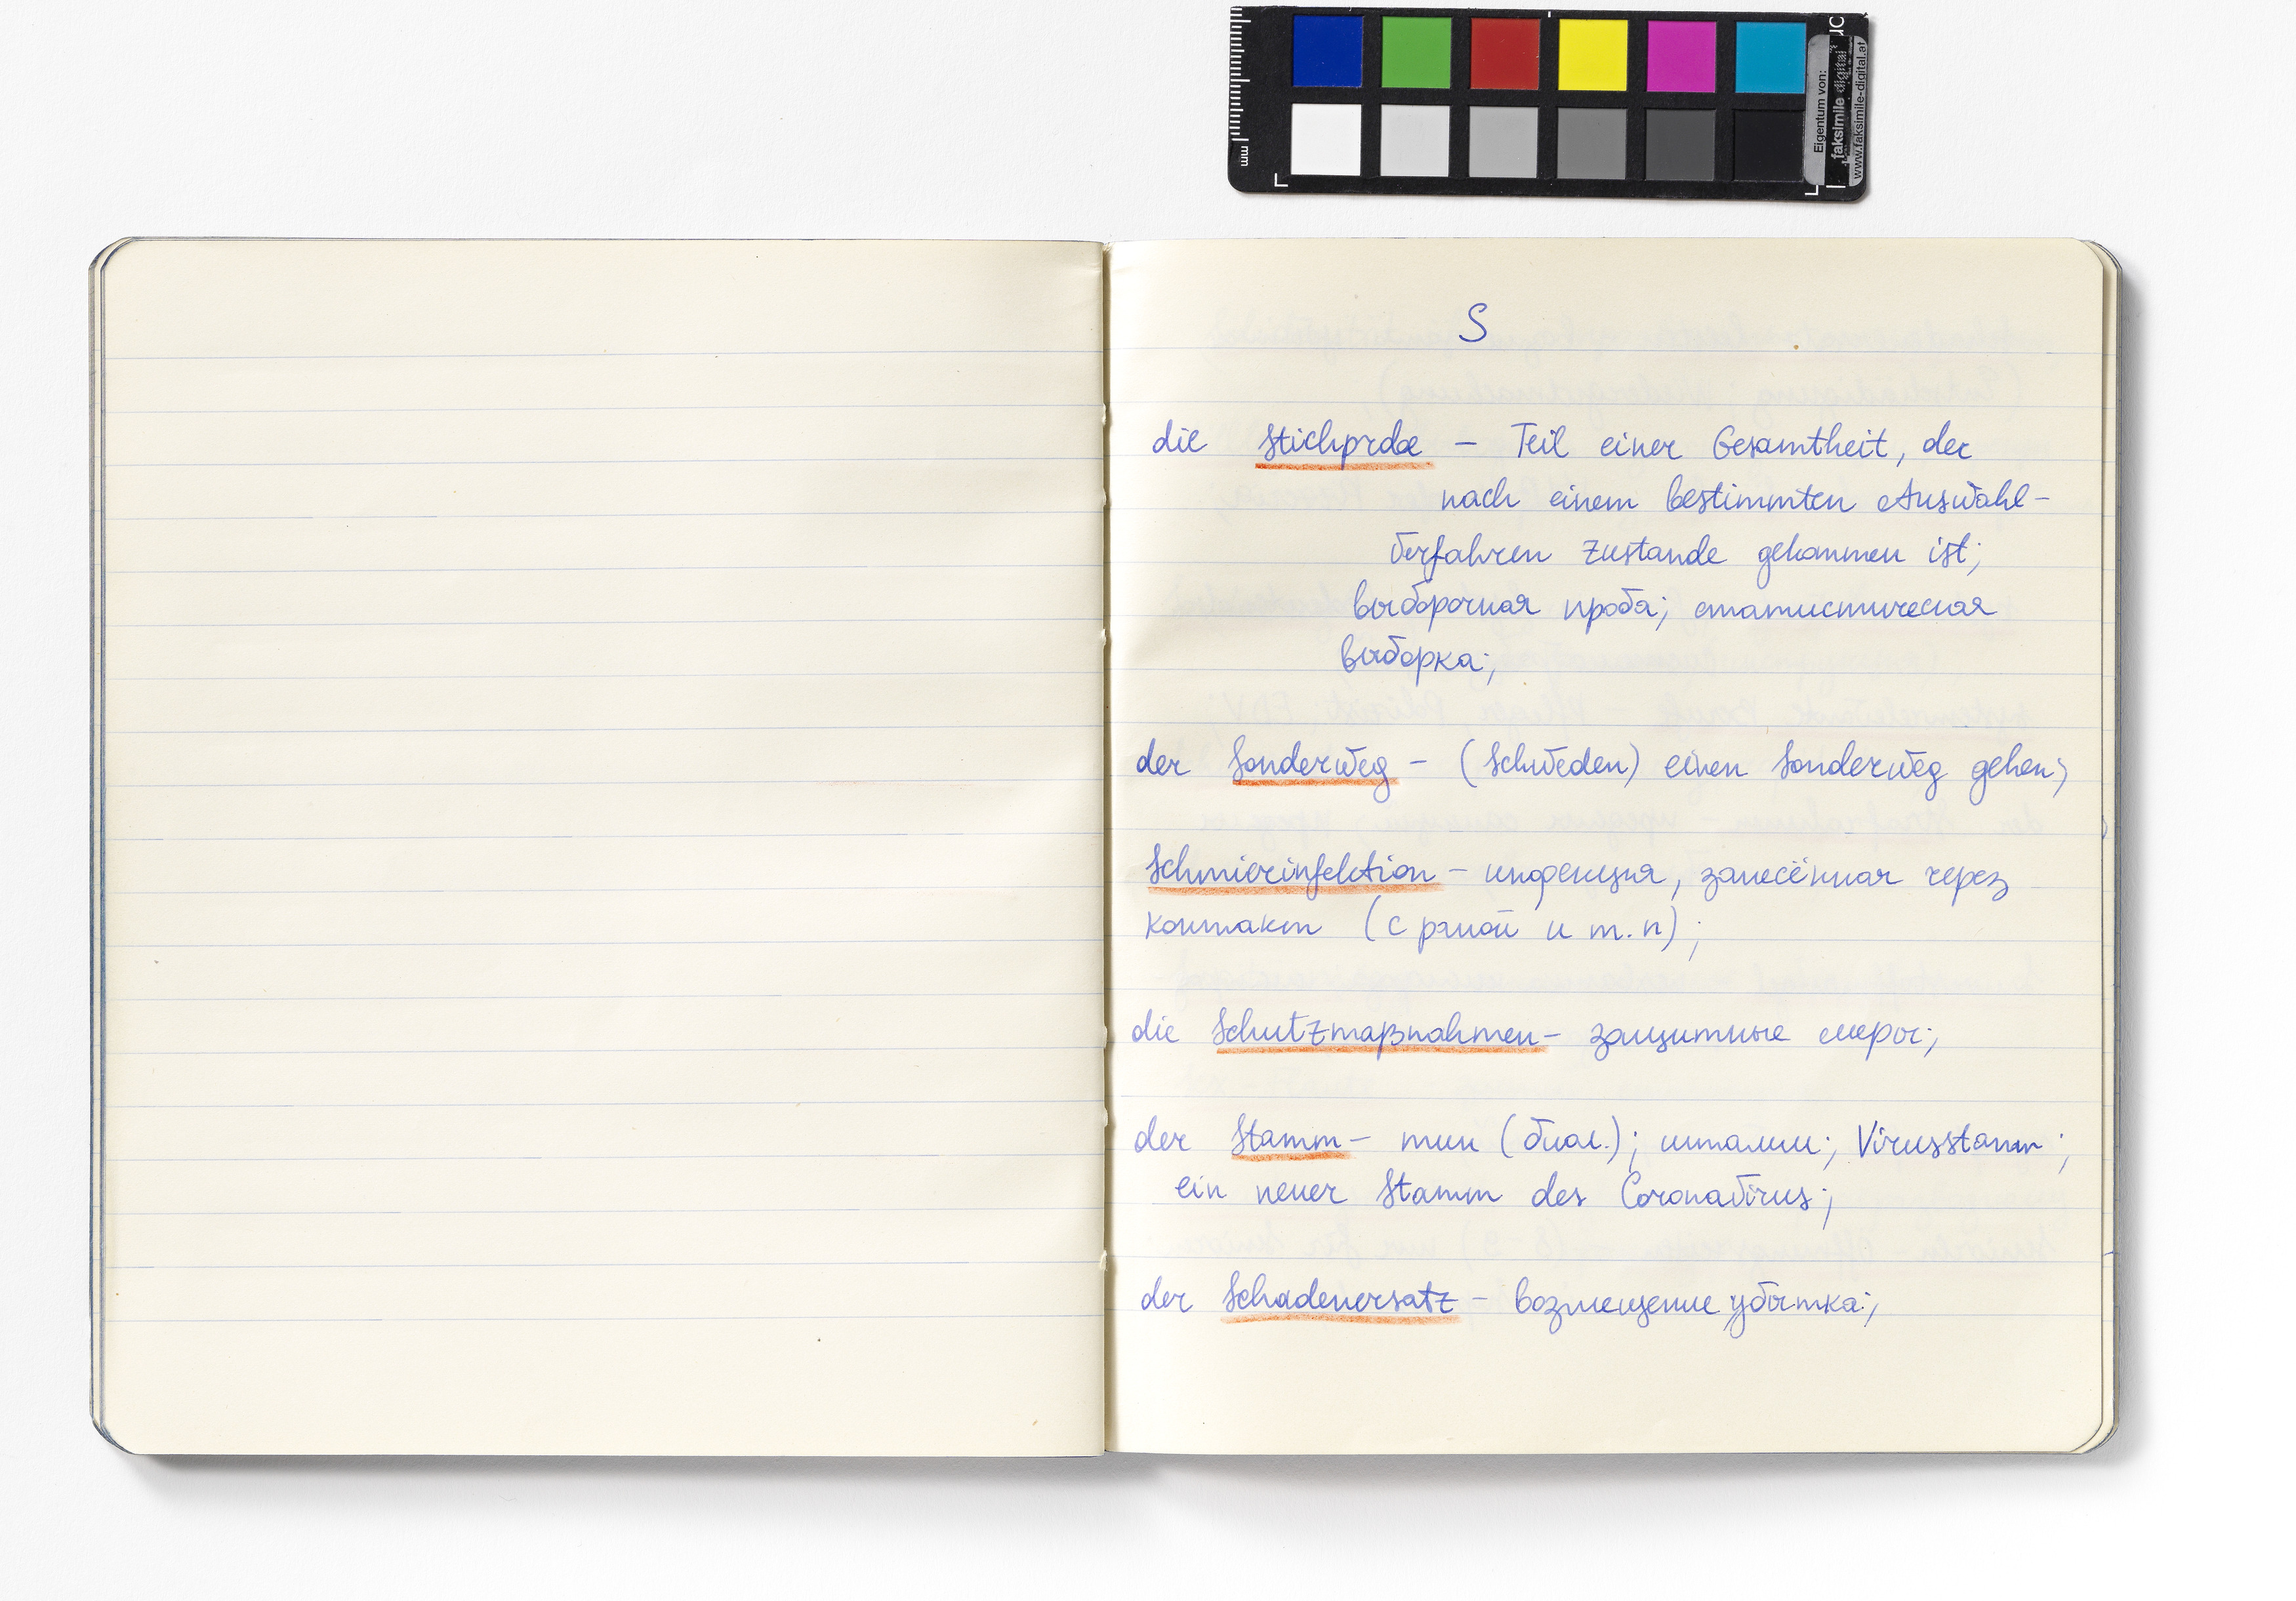 mm
Eigentum von:
faksimile digital
www.faksimile-digital.at
S
die Stichprobe – Teil einer Gesamtheit, der
nach einem bestimmten Auswahl-
verfahren zustande gekommen ist;
выборочная проба; статистическая
выборка;
der Sonderweg – (Schweden) einen Sonderweg gehen;
Schmierinfektion – инфекция, занесённая через
контакт (с рукой и т.п);
die Schutzmaßnahmen – защитные меры;
der Stamm – тип (биол.); штамм; Virusstamm;
ein neuer Stamm des Coronavirus;
der Schadenersatz – возмещение убытка;